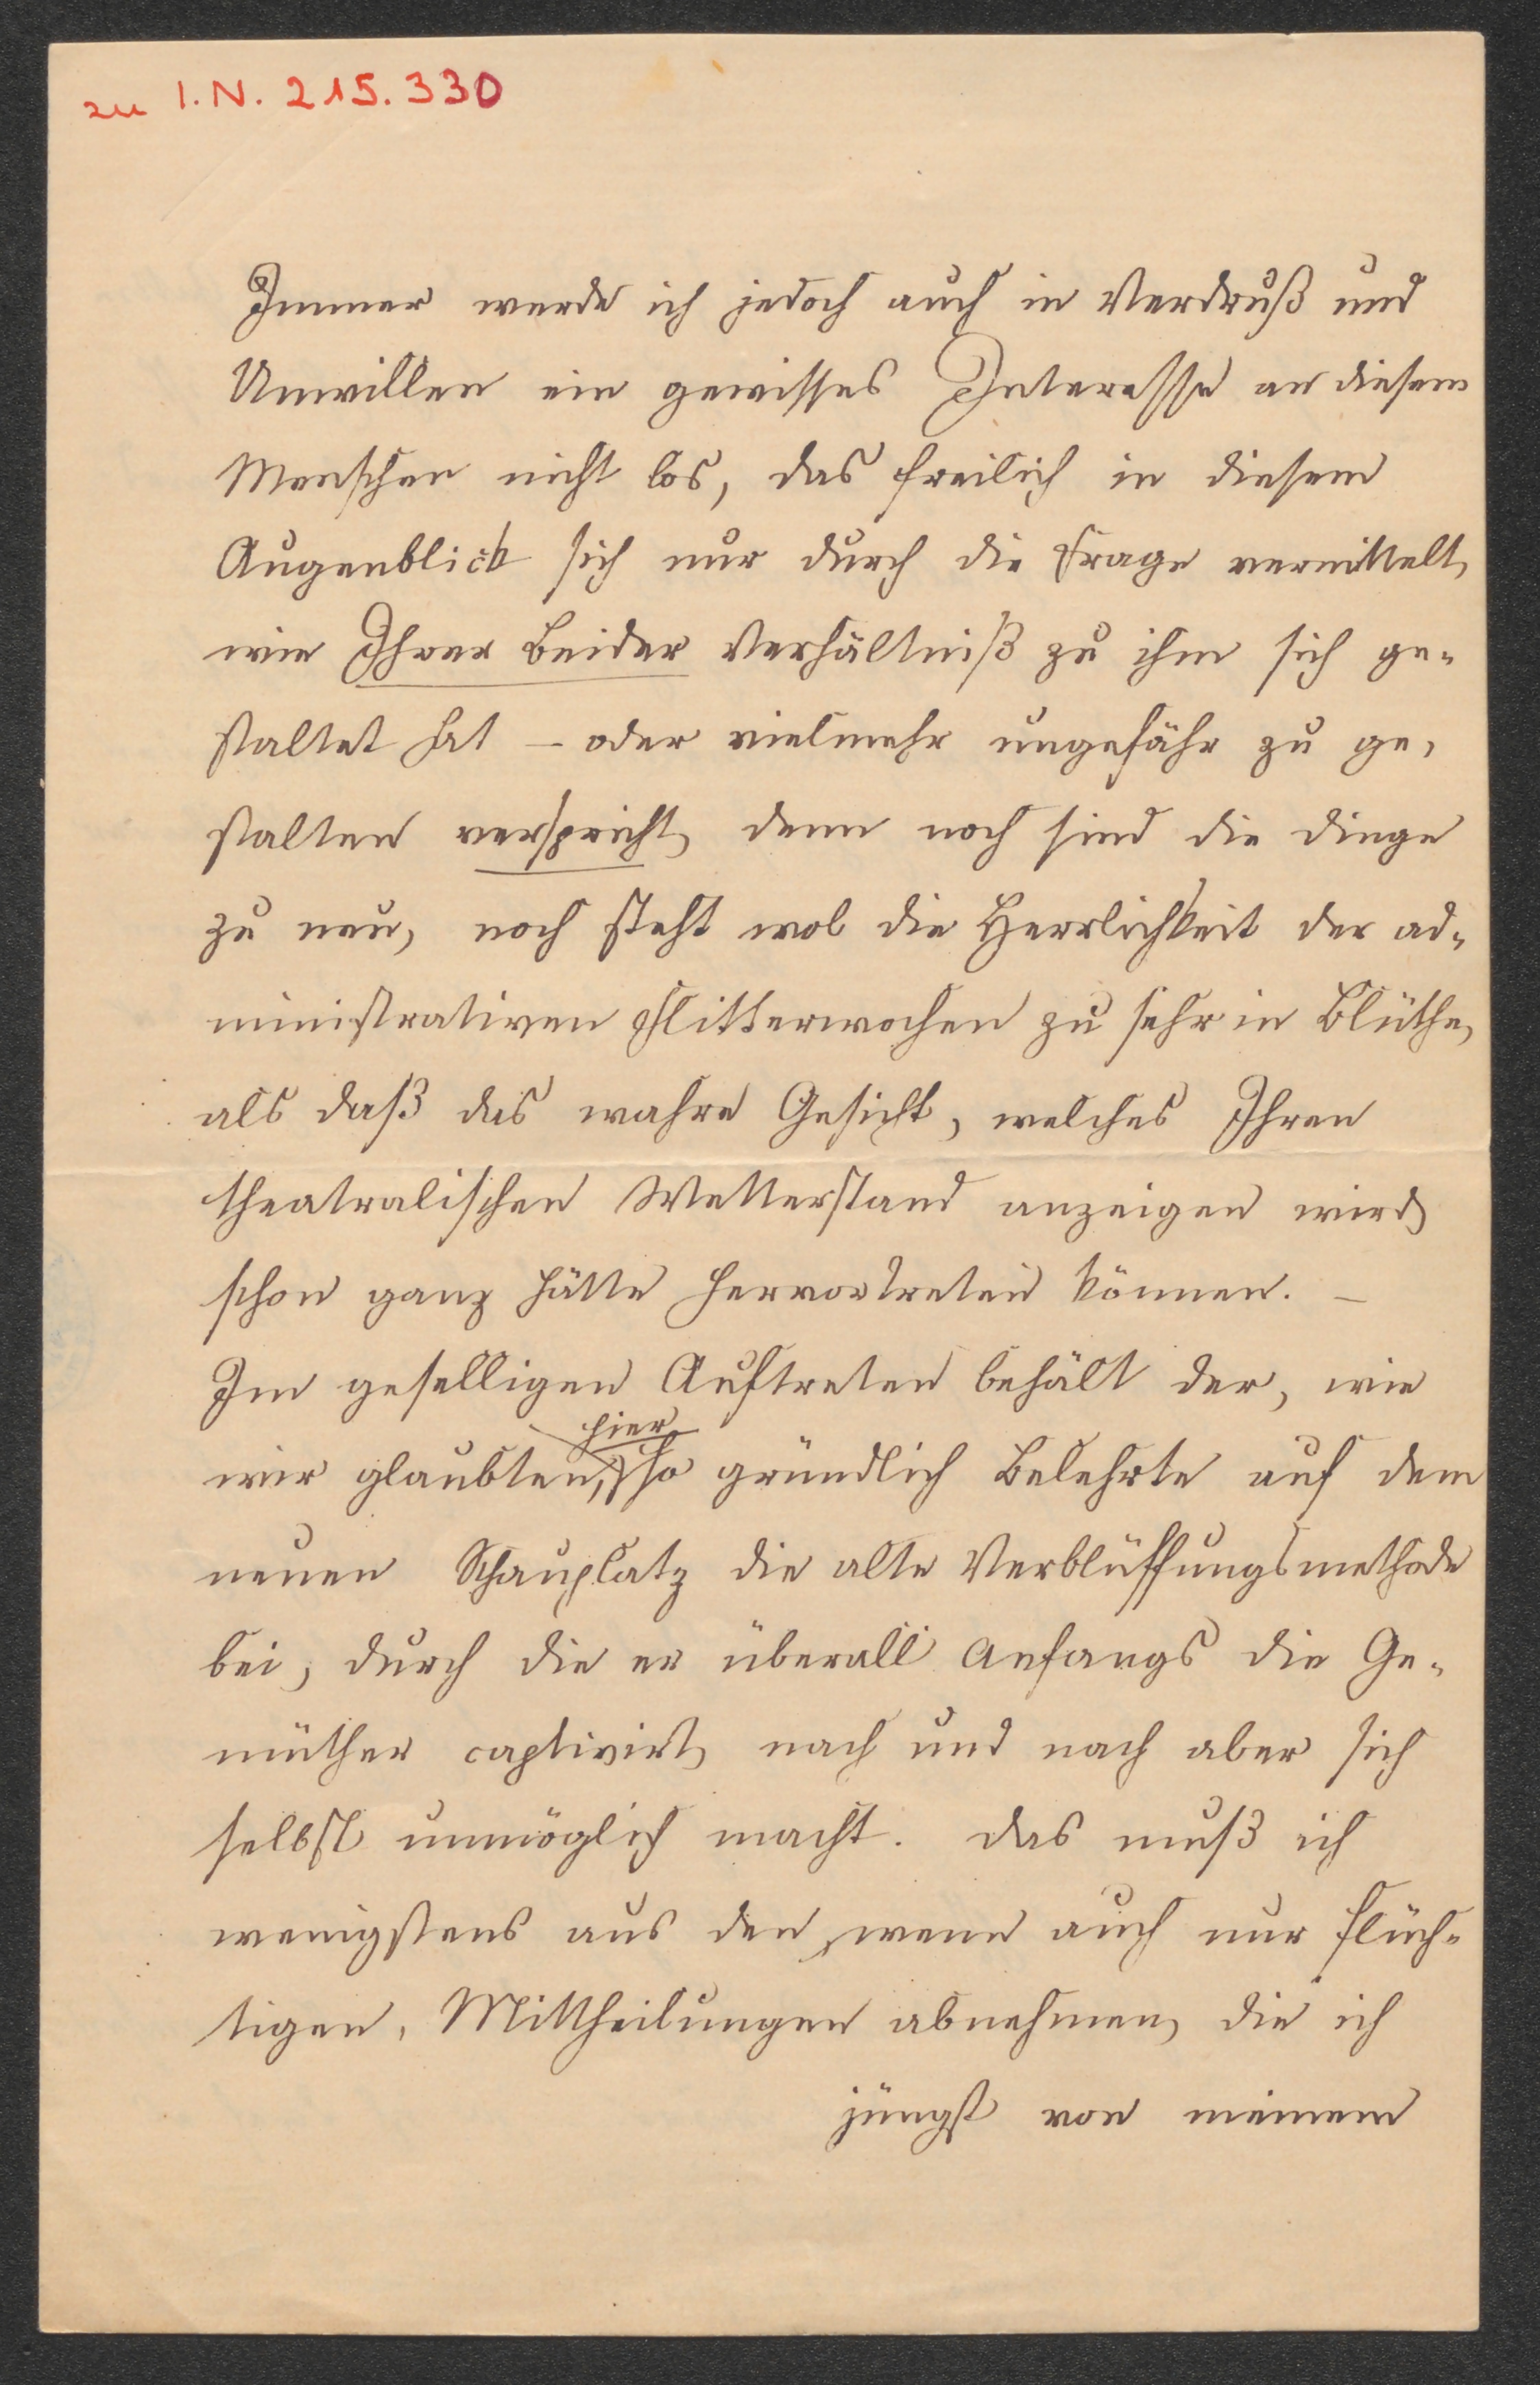 zu I.N. 215.330
Immer werde ich jedoch auch in Verdruß und
Unwillen ein gewisses Interesse an diesem
Menschen nicht los, das freilich in diesem
Augenblick sich nur durch die Frage vermittelt,
wie Ihrer Beider Verhältniß zu ihm sich ge-
staltet hat – oder vielmehr ungefähr zu ge-
stalten verspricht, denn noch sind die Dinge
zu neu, noch steht wol die Herrlichkeit der ad-
ministrativen Flitterwochen zu sehr in Blüthe,
als daß das wahre Gesicht, welches Ihren
theatralischen Wetterstand anzeigen wird,
schon ganz hätte hervortreten können. –
Im geselligen Auftreten behält der, wie
hier
wir glaubten, so gründlich Belehrte auf dem
neuen Schauplatz die alte Verblüffungsmethode
bei, durch die er überall Anfangs die Ge-
müther captivirt, nach und nach aber sich
selbst unmöglich macht. Das muß ich
wenigstens aus den, wenn auch nur flüch-
tigen, Mittheilungen abnehmen, die ich
jüngst von meinem